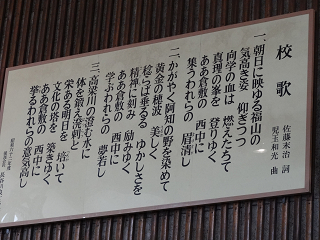 校歌
佐藤末治 詞
児玉和光 曲
一、朝日に映ゆる福山の
気高き姿 仰ぎつつ
向学の血は 燃えたちて
真理の峯を 登りゆく
ああ倉敷の 西中に
集うわれらの 眉清し
二、かがやく阿知の野を染めて
黄金の穂波 美しく
稔らば垂るる ゆかしさを
精神に刻み 励みゆく
ああ倉敷の 西中に
学ぶわれらの 夢若し
三、高梁川の澄む水に
体を鍛え溌剌と
栄ある明日を 培いて
文化の塔を 築きゆく
ああ倉敷の 西中に
挙るわれらの意気高し